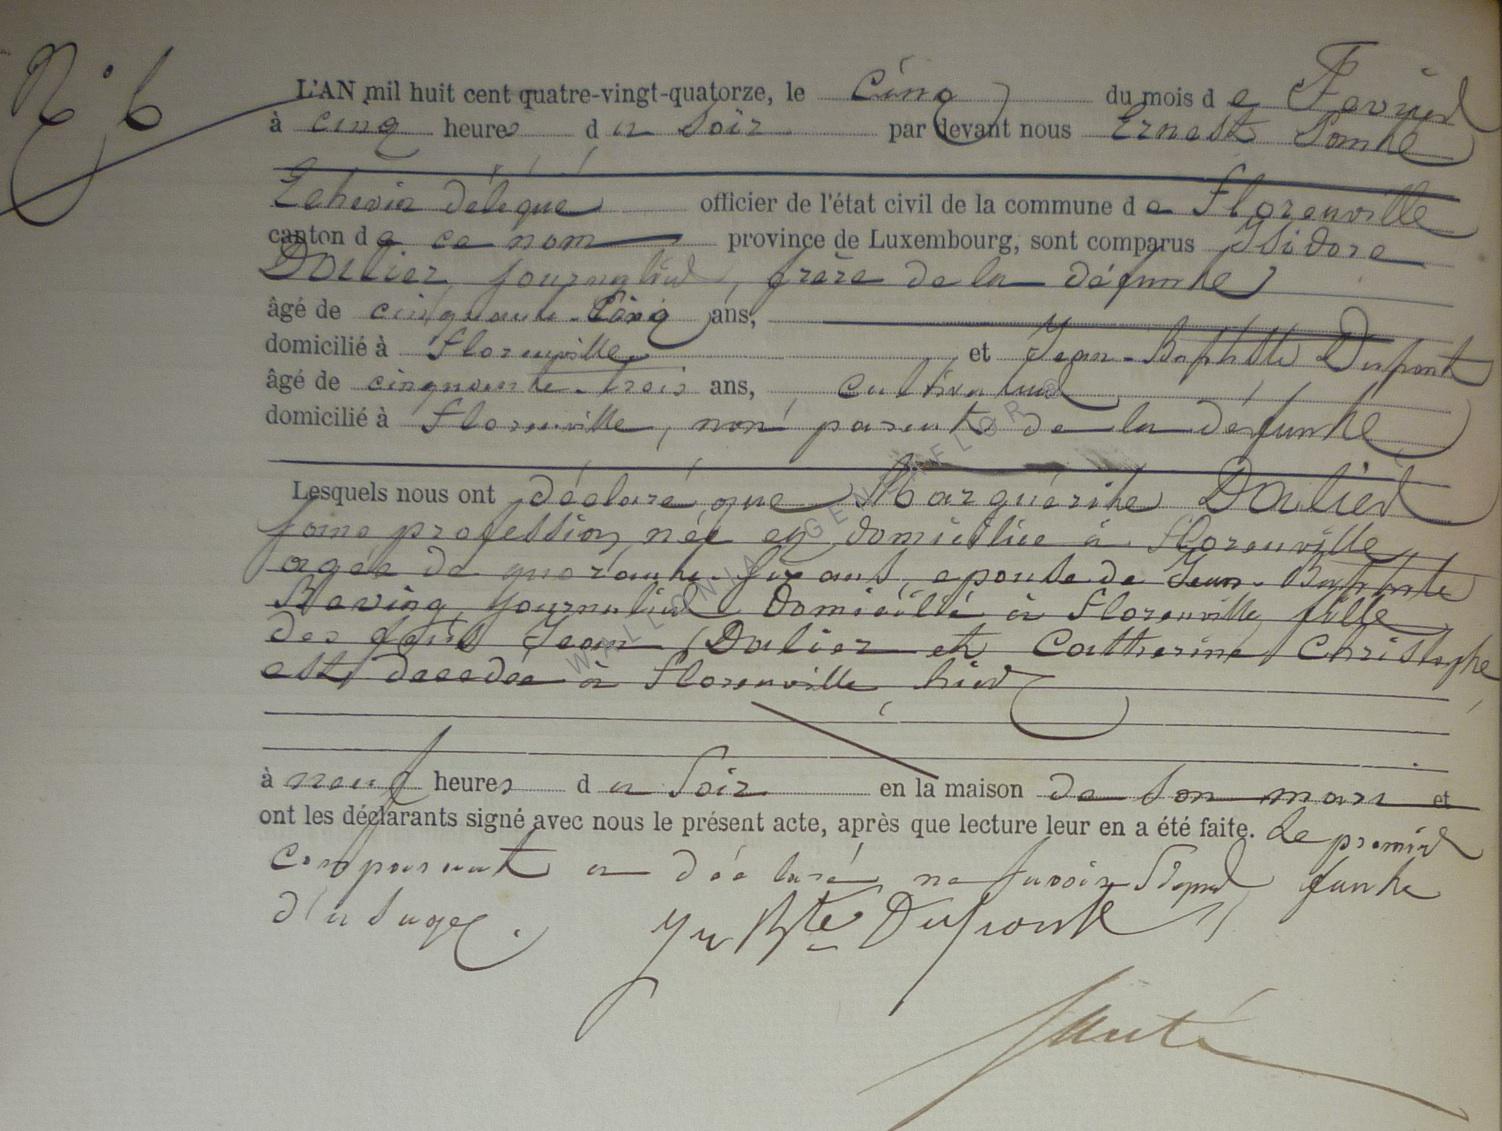 N° 6
L'AN mil huit cent quatre-vingt-quatorze, le cinq du mois de Fevrier
à cinq heures du Soir par devant nous Ernest
Echevin délégué officier de l'état civil de la commune de Florenville
canton de ce nom province de Luxembourg, sont comparus Isidore
Dalier, journalier, frère de la défunte
âgé de cinquante-cinq ans,
domicilié à Florenville et Jean-Baptiste Dupont
âgé de cinquante-trois ans, cultivateur
domicilié à Florenville, non parent de la défunte
Lesquels nous ont déclaré que Marguerite Dalier
sans profession, née et domiciliée à Florenville
agée de quarante-six ans, epouse de Jean-Baptiste
journalier domicilié à Florenville, fille
des feus Jean Dalier et Catherine Christophe
est décédée à Florenville hier
à neuf heures du Soir en la maison de son mari et
ont les déclarants signé avec nous le présent acte, après que lecture leur en a été faite. Le premier
comparant a déclaré ne savoir Signer faute
d'usage.
Jn Bte Dupont
WALLONIA GENEAFLOR ©